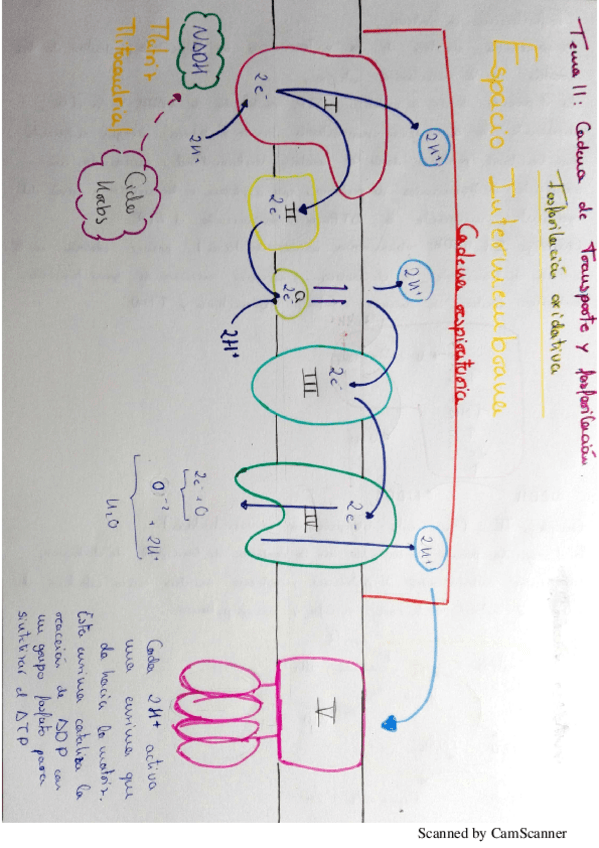 Tema 11: Cadena de transporte y fosforilación.
fosforilación oxidativa
Espacio Intermembrana
Cadena respiratoria
2H⁺
2H⁺
2H⁺
I
2e⁻
II
2e⁻
Q
2e⁻
2e⁻
III
2e⁻
IV
V
2H⁺
2H⁺
NADH
Matriz
Mitocondrial
Ciclo
Krebs
2e⁻ + O
O⁻² + 2H⁺
H₂O
Cada 2H⁺ activa
una enzima que
da hacia la matriz.
Esta enzima cataliza la
reacción de ADP con
un grupo fosfato para
sintetizar el ATP
Scanned by CamScanner